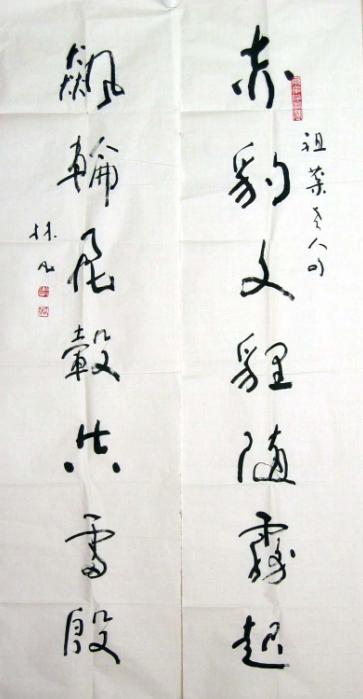 祖棻老人句
赤豹文貍隨霧起
飆輪飛轂共雷殷
林凡